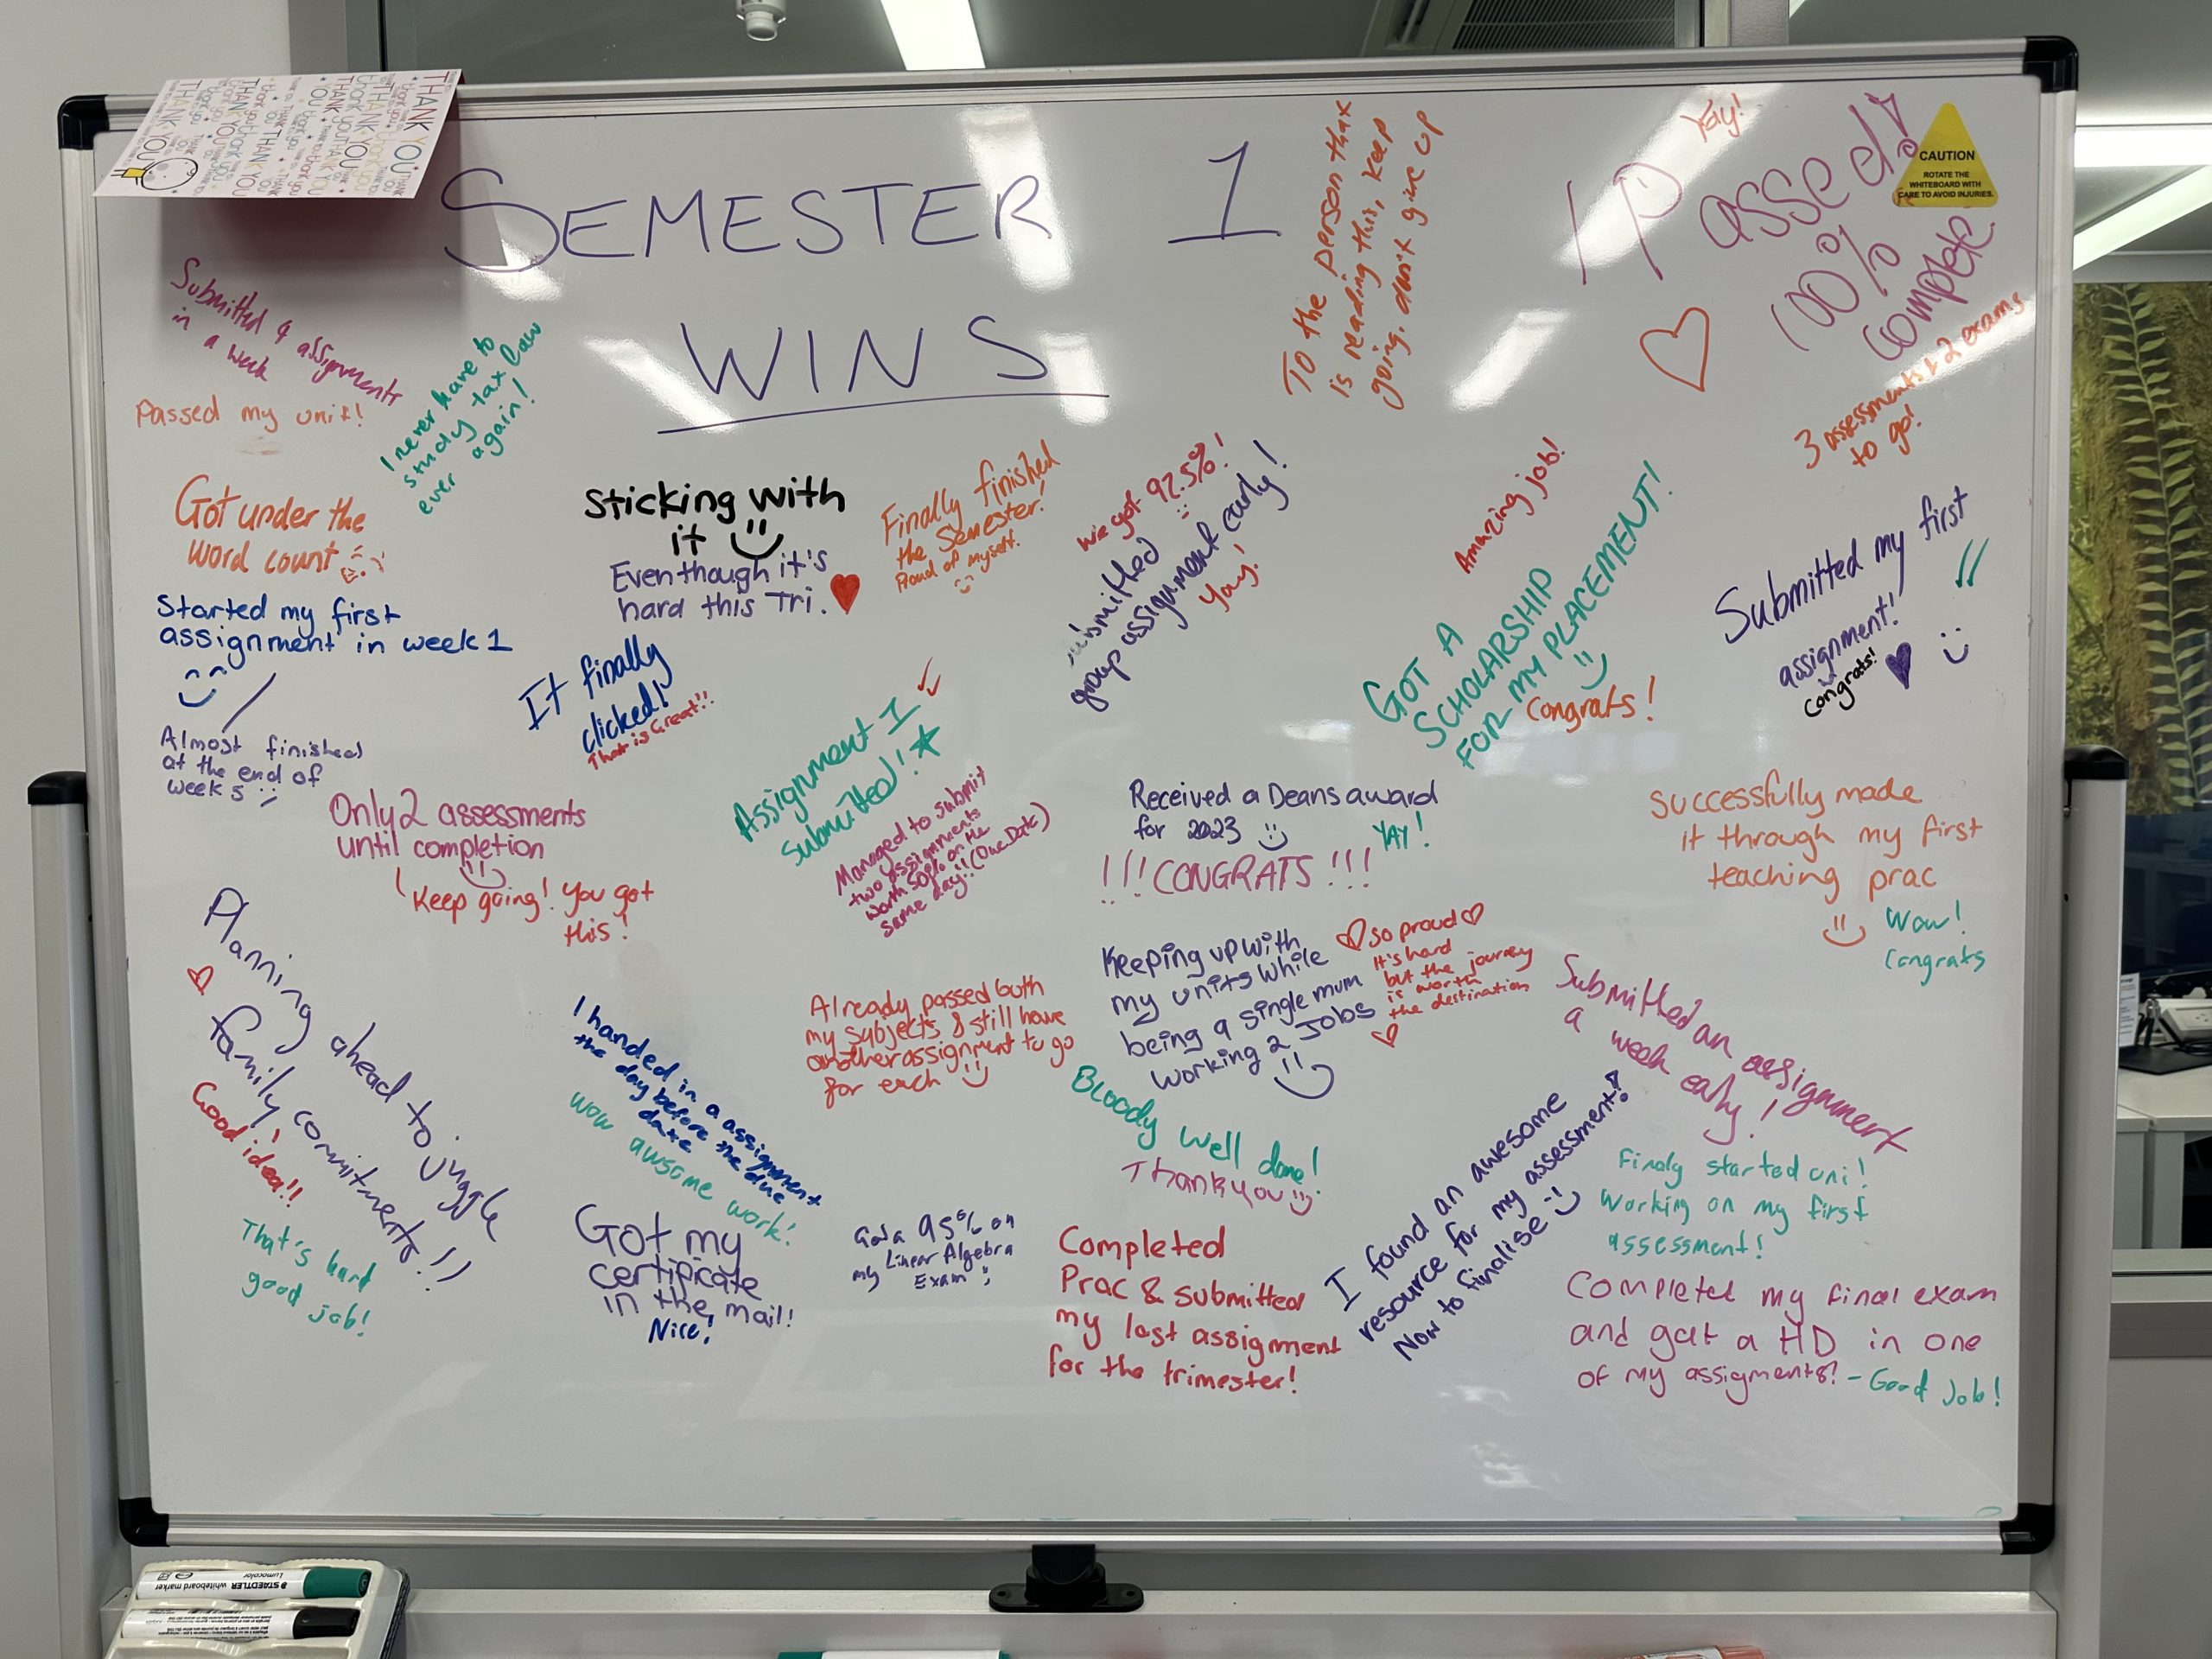 SEMESTER 1
WINS
THANK YOU
To the person thax
is reading this, keep
going. don't give up
Yay!
I Passed!
100%
complete
CAUTION
ROTATE THE
WHITEBOARD WITH
CARE TO AVOID INJURIES.
Submitted 4 assignments
in a week
Passed my unit!
I never have to
study tax law
ever again!
3 assessments & 2 exams
to go!
Got under the
word count
Sticking with
it
Even though it's
hard this Tri.
Finally finished
the Semester!
Proud of myself.
We got 92.5%!
submitted
group assignment early!
Yay!
Amazing job!
GOT A
SCHOLARSHIP
FOR MY PLACEMENT!
Congrats!
Submitted my first
assignment!
Congrats!
Started my first
assignment in week 1
Almost finished
at the end of
week 5
It finally
clicked!
That is Great!!
Assignment 1
Submitted!
Managed to submit
two assignments
worth 50% on the
same day!! (One Date)
Only 2 assessments
until completion
Keep going! You got
this!
Received a Deans award
for 2023
YAY!
!!! CONGRATS !!!
Successfully made
it through my first
teaching prac
Wow!
Congrats
Planning ahead to juggle
family commitments!!!
Good idea!!
That's hard
good job!
I handed in a assignment
the day before the due
date
wow awsome work!
Already passed both
my subjects & still have
another assignment to go
for each
Keeping up with
my units while
being a single mum
working 2 jobs
so proud
It's hard
but the journey
is worth
the destination
Bloody well done!
Thankyou
Submitted an assignment
a week early!
Finaly started uni!
Working on my first
assessment!
I found an awesome
resource for my assessment!
Now to finalise
Got my
certificate
in the mail!
Nice!
95% on
my Linear Algebra
Exam
Completed
Prac & submitted
my last assignment
for the trimester!
Completed my final exam
and got a HD in one
of my assigments! - Good Job!
STAEDTLER
Lumocolor
whiteboard marker